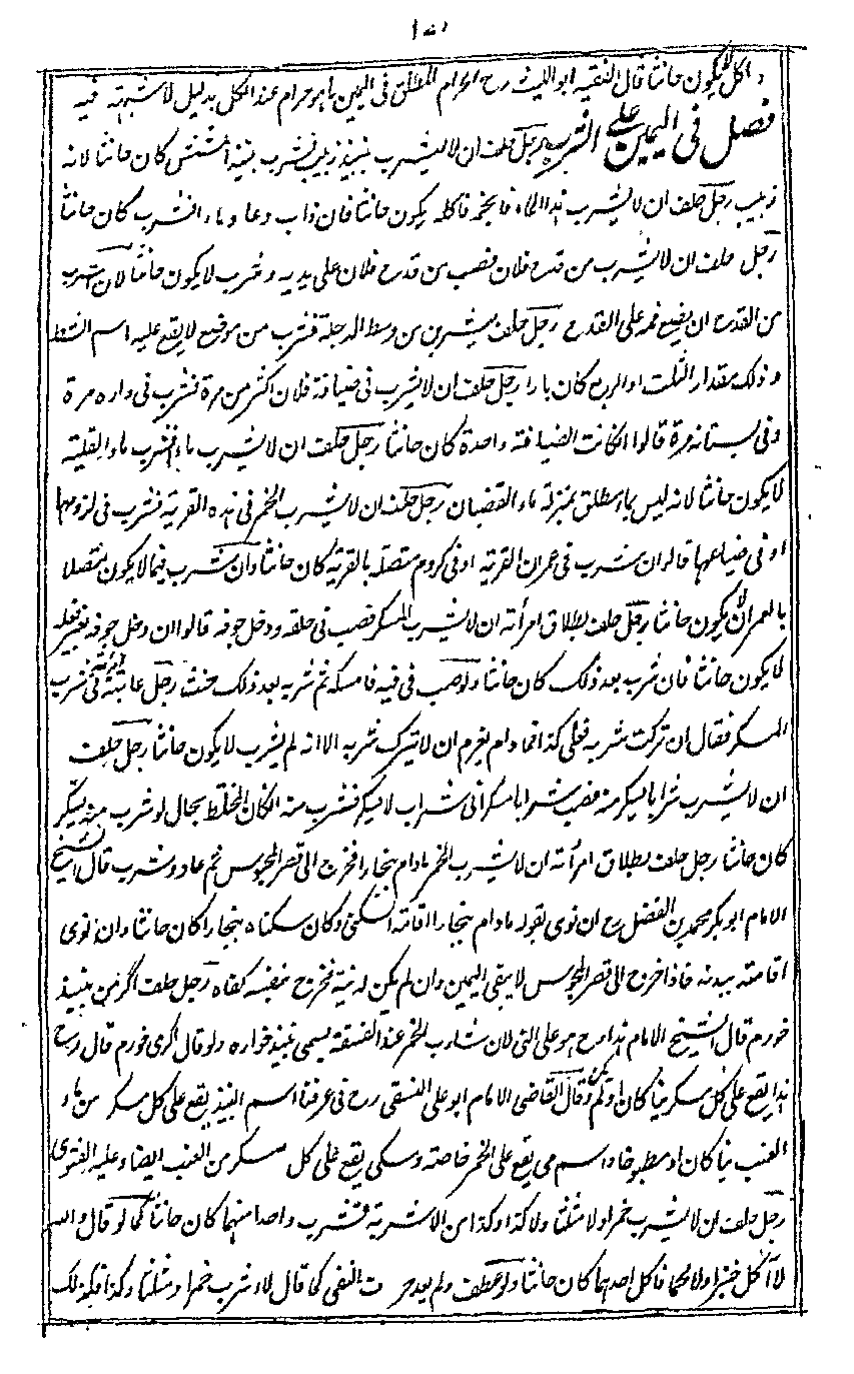 واكل لا يكون حانثا قال الفقيه ابو الليث رح الحرام المطلق في اليمين ما هو حرام عند الكل بدليل لا شبهة فيه
فصل في اليمين على الشرب رجل حلف ان لا يشرب نبيذ زبيب فشرب نبيذ كشمش كان حانثا لانه
زبيب رجل حلف ان لا يشرب هذا الماء فانجمد فاكله لا يكون حانثا فان ذاب وعاد ماء فشرب كان حانثا
رجل حلف ان لا يشرب من قدح فلان فصب من قدح فلان على يديه وشرب لا يكون حانثا لان الشرب
من القدح ان يضع فمه على القدح رجل حلف ليشربن من وسط الدجلة فشرب من موضع لا يقع عليه اسم الشط
وذلك مقدار الثلث او الربع كان بارا رجل حلف ان لا يشرب في ضيافة فلان اكثر من مرة فشرب في داره مرة
وفي بستانه مرة قالوا ان كانت الضيافة واحدة كان حانثا رجل حلف ان لا يشرب ماء فشرب ماء القلية
لا يكون حانثا لانه ليس بماء مطلق بمنزلة ماء رجل حلف ان لا يشرب الخمر في هذه القرية فشرب في كرومها
او في ضياعها قالوا ان شرب في عمران القرية او في كروم متصلة بالقرية كان حانثا وان شرب فيما لا يكون متصلا
بالعمران لا يكون حانثا رجل حلف بطلاق امرأته ان لا يشرب المسكر فصب في حلقه ودخل جوفه قالوا ان دخل جوفه بغير فعله
لا يكون حانثا فان شرب بعد ذلك كان حانثا ولو صب في فيه فامسكه ثم شربه بعد ذلك حنث رجل عاتبته امرأته في شرب
المسكر فقال ان تركت شربه فعلي كذا فما دام يعزم ان لا يترك شربه الا انه لم يشرب لا يكون حانثا رجل حلف
ان لا يشرب شرابا يسكر منه فصب شرابا مسكرا في شراب لا يسكر فشرب منه ان كان المختلط بحال لو شرب منه يسكر
كان حانثا رجل حلف بطلاق امرأته ان لا يشرب الخمر مادام ببخارا فخرج الى قصر المجوس ثم عاد وشرب قال الشيخ
الامام ابو بكر محمد بن الفضل رح ان نوى بقوله مادام ببخارا اقامة السكنى وكان سكناه ببخارا كان حانثا وان نوى
اقامته ببدنه فاذا خرج الى قصر المجوس لا يبقى اليمين وان لم يكن له نية فخروج بنفسه كفاه رجل حلف اگر من نبيذ
خورم قال الشيخ الامام هذا رح هو على التي لان شارب الخمر عند الفسقة يسمى نبيذ خواره ولو قال خورم قال رح
هذا يقع على كل مسكر نيا كان او وقال القاضي الامام ابو علي النسفي رح في عرفنا اسم النبيذ يقع على كل مسكر من ماء
العنب نيا كان او مطبوخا واسم مي يقع على الخمر خاصة وسيكي يقع على كل مسكر من العنب ايضا وعليه الفتوى
رجل حلف ان لا يشرب خمرا ولا مثلثا ولا كذا وكذا من الاشربة فشرب واحدا منها كان حانثا كما لو قال والله
لا آكل خبزا ولا لحما فاكل احدهما كان حانثا ولو عطف ولم يعد حرف النفي كما قال لا اشرب خمرا ومثلثا وكذا فكذلك